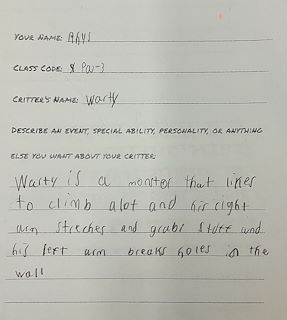 YOUR NAME: Rhys
CLASS CODE: 8 Par-3
CRITTER'S NAME: Warty
DESCRIBE AN EVENT, SPECIAL ABILITY, PERSONALITY, OR ANYTHING
ELSE YOU WANT ABOUT YOUR CRITTER:
Warty is a monster that likes
to climb alot and his right
arm streches and grabs stuff and
his left arm breaks holes in the
wall